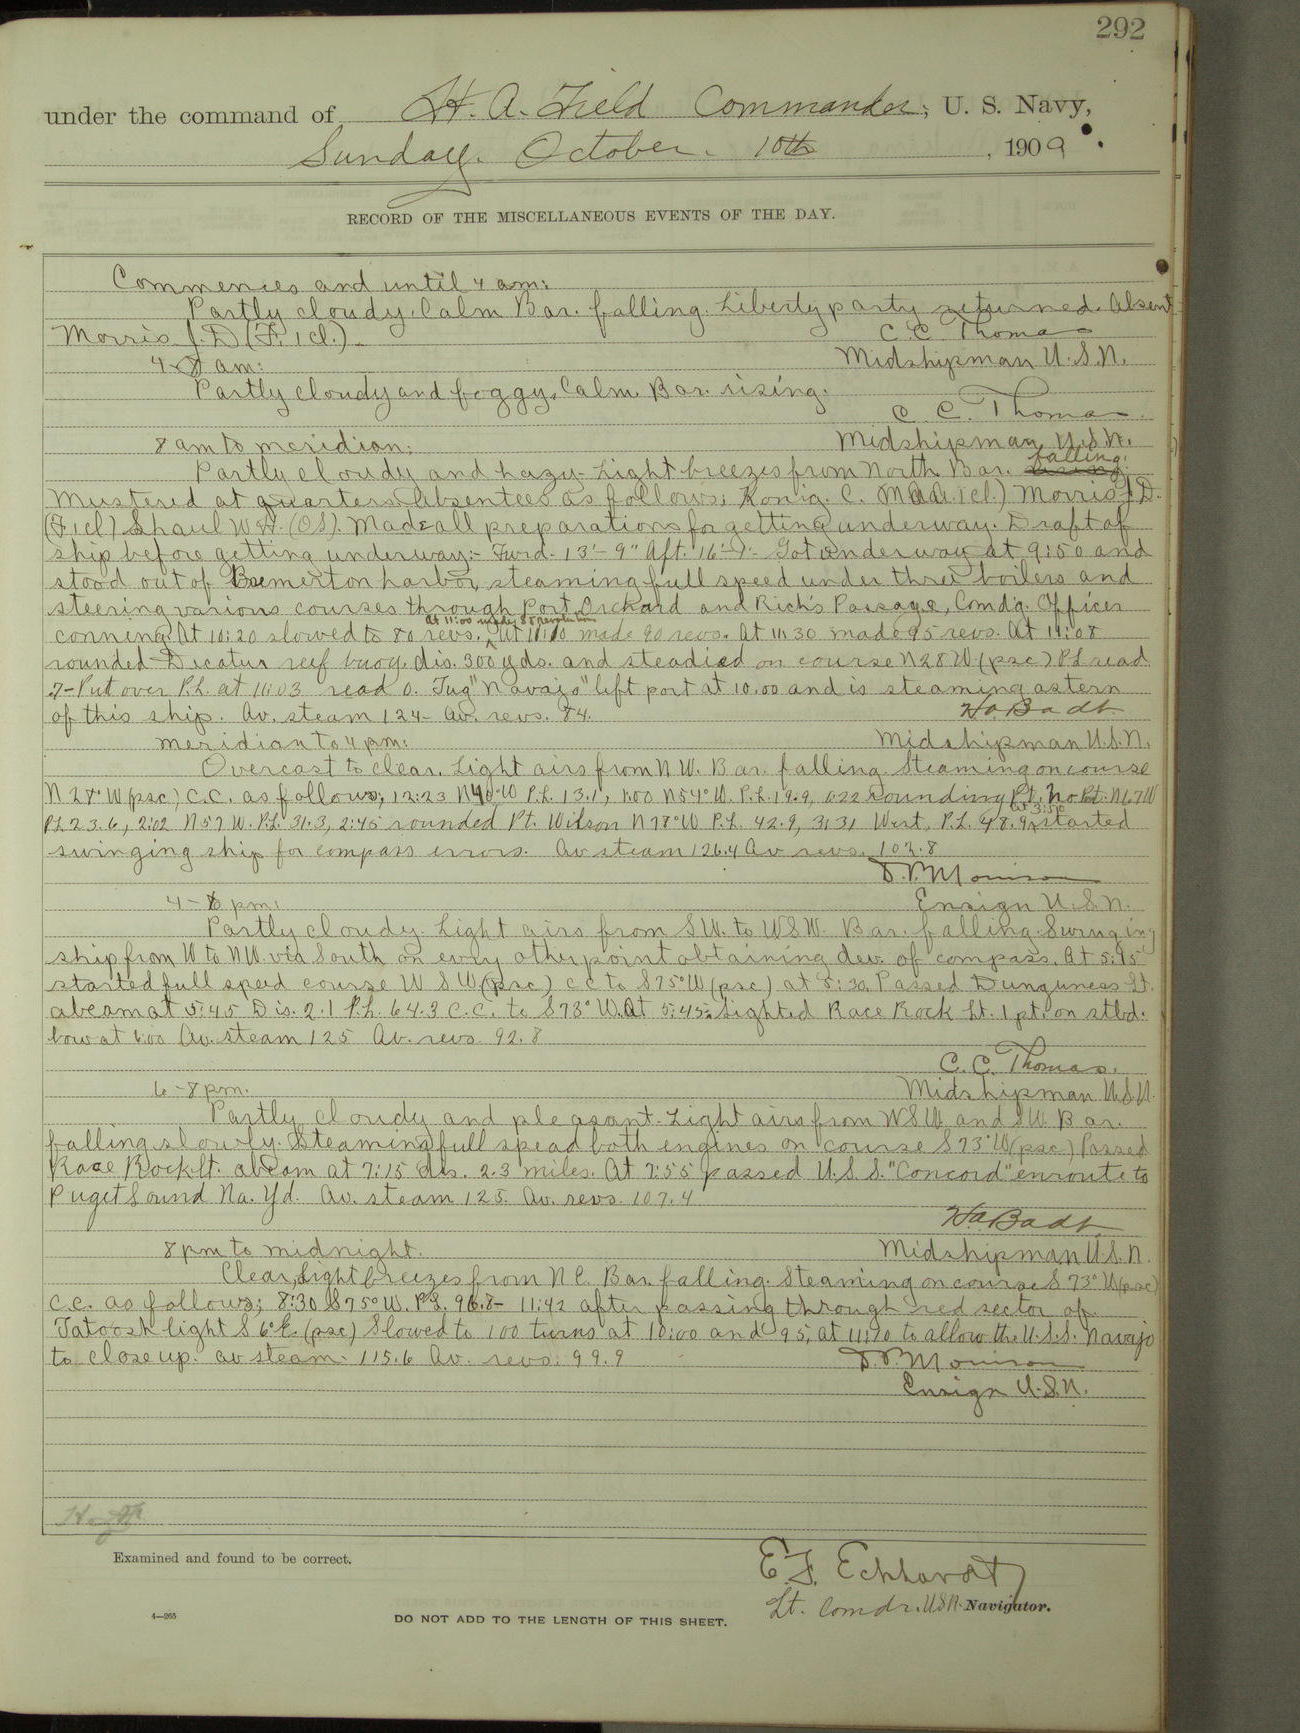 292
under the command of H. A. Field Commander, U. S. Navy,
Sunday. October. 10th, 1909.
RECORD OF THE MISCELLANEOUS EVENTS OF THE DAY.
Commences and until 4 am:
Partly cloudy. Calm Bar. falling. Liberty party returned. Absent
Morris J. D (F. 1cl.)
C. C. Thomas
4-8 am:
Midshipman U.S.N.
Partly cloudy and foggy, Calm. Bar. rising.
C. C. Thomas
8 am to meridian:
Midshipman U.S.N.
Partly cloudy and hazy. Light breezes from North. Bar. falling.
Mustered at quarters. Absentees as follows; Konig. C. (M.A.A. 1cl.) Morris J. D.
(F. 1cl) Shaul W. H. (O.S). Made all preparations for getting underway. Draft of
ship before getting underway:- Fwrd- 13'-9" Aft. 16'-9". Got underway at 9:50 and
stood out of Bremerton harbor, steaming full speed under three boilers and
steering various courses through Port Orchard and Rich's Passage, Comd'g. Officer
at 11:00 made 85 revolutions
conning. At 10:20 slowed to 80 revs. At 11:10 made 90 revs. At 11:30 made 95 revs. At 11:08
rounded Decatur reef buoy. dis. 300 yds. and steadied on course N28W (psc) P.L read
.7- Put over P.L. at 11:03 read 0. Tug "Navajo" left port at 10.00 and is steaming astern
of this ship. Av. steam 124- Av. revs. 84.
H.A. Badt
meridian to 4 pm:
Midshipman U.S.N.
Overcast to clear. Light airs from N.W. Bar. falling. Steaming on course
N 28° W (psc) C.C. as follows; 12:23 N40°W P.L. 13.1, 1:00 N54°W. P.L. 19.9, 1:22 rounding Pt. No Pt. N67W
at 3:50
P.L 23.6, 2:02 N57 W. P.L. 31.3, 2:45 rounded Pt. Wilson N78°W P.L. 42.9, 3:31 West, P.L. 48.9, started
swinging ship for compass errors. Av steam 126.4 Av revs. 102.8
D.P. Morrison
4-6 pm:
Ensign U.S.N.
Partly cloudy. Light airs from SW. to WSW. Bar. falling. Swinging
ship from W to NW. via South on every other point obtaining dev. of compass. At 5:15
started full speed course W S W (psc) c.c to S75°W (psc) at 5:30. Passed Dungeness Lt.
abeam at 5:45 Dis. 2.1 P.L. 64.3 C.C. to S 73° W. At 5:45. Sighted Race Rock Lt. 1 pt. on stbd.
bow at 6:00 Av. steam 125 Av. revs 92.8
C. C. Thomas.
6-8 pm.
Midshipman U.S.N.
Partly cloudy and pleasant. Light airs from WSW. and SW. Bar.
falling slowly. Steaming full spead both engines on course S 73° W (psc) Passed
Race Rock lt. abeam at 7:15 dis. 2.3 miles. At 7:55 passed U.S.S. "Concord" enroute to
Puget Sound Na. Yd. Av. steam 125. Av. revs. 107.4
H.A. Badt
8 pm to midnight.
Midshipman U.S.N.
Clear, Light breezes from N.E. Bar. falling. Steaming on course S 73° W (psc)
C.C. as follows; 8:30 S75°W. P.L. 96.8- 11:42 after passing through red sector of
Tatoosh light S 6° E. (psc) Slowed to 100 turns at 10:00 and 95, at 11:20 to allow the U.S.S. Navajo
to close up. av steam. 115.6 Av. revs. 99.9
D.P. Morrison
Ensign U.S.N.
Examined and found to be correct.
E. F. Eckhardt
Lt. Comdr. U.S.N. Navigator.
4—265
DO NOT ADD TO THE LENGTH OF THIS SHEET.